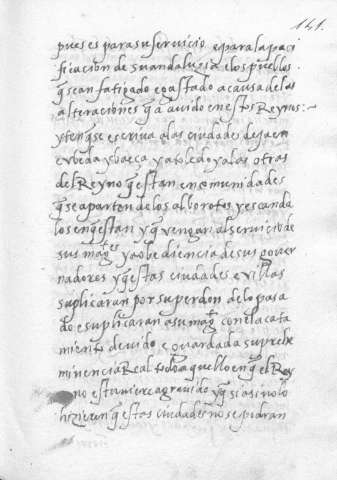 141.
pues es para su servicio e para la paci
ficacion de su andaluzia e los pueblos
q̃ se an fatigado e gastado a causa de las
alteraciones q̃ a avido en estos Reynos:~
yten q̃ se escriva a las ciudades de jaen
e vbeda y baeça y a toledo y a las otras
del Reyno q̃ estan en comunidades
q̃ se aparten de los alborotos y escanda
los en q̃ estan y q̃ vengan al servicio de
sus mag.es y a obediencia de sus gover
nadores y q̃ estas ciudades e villas
suplicaran por su perdon de lo pasa
do e suplicaran a su mag.t con el acata
miento devido e guardada su prehe
minencia Real todo aquello en q̃ el Rey
no estuviere agraviado y q̃ si asi no lo
hizieren q̃ estas ciudades no se podran